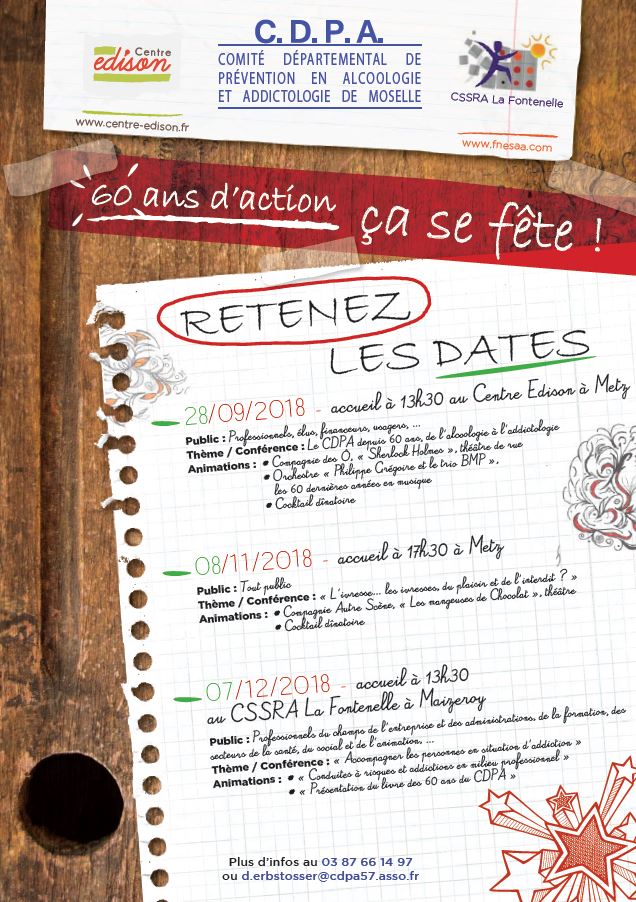 Centre
edison
www.centre-edison.fr
C. D. P. A.
COMITÉ DÉPARTEMENTAL DE
PRÉVENTION EN ALCOOLOGIE
ET ADDICTOLOGIE DE MOSELLE
CSSRA La Fontenelle
www.fnesaa.com
60 ans d'action ça se fête !
RETENEZ
LES DATES
28/09/2018 - accueil à 13h30 au Centre Edison à Metz
Public : Professionnels, élus, financeurs, usagers, ...
Thème / Conférence : Le CDPA depuis 60 ans, de l'alcoologie à l'addictologie
Animations : • Compagnie des Ô, « Sherlock Holmes », théâtre de rue
• Orchestre « Philippe Grégoire et le trio BMP »,
les 60 dernières années en musique
• Cocktail dînatoire
08/11/2018 - accueil à 17h30 à Metz
Public : Tout public
Thème / Conférence : « L'ivresse... les ivresses, du plaisir et de l'interdit ? »
Animations : • Compagnie Autre Scène, « Les mangeuses de Chocolat », théâtre
• Cocktail dînatoire
07/12/2018 - accueil à 13h30
au CSSRA La Fontenelle à Maizeroy
Public : Professionnels du champs de l'entreprise et des administrations, de la formation, des
secteurs de la santé, du social et de l'animation, ...
Thème / Conférence : « Accompagner les personnes en situation d'addiction »
Animations : • « Conduites à risques et addictions en milieu professionnel »
• « Présentation du livre des 60 ans du CDPA »
Plus d'infos au 03 87 66 14 97
ou d.erbstosser@cdpa57.asso.fr